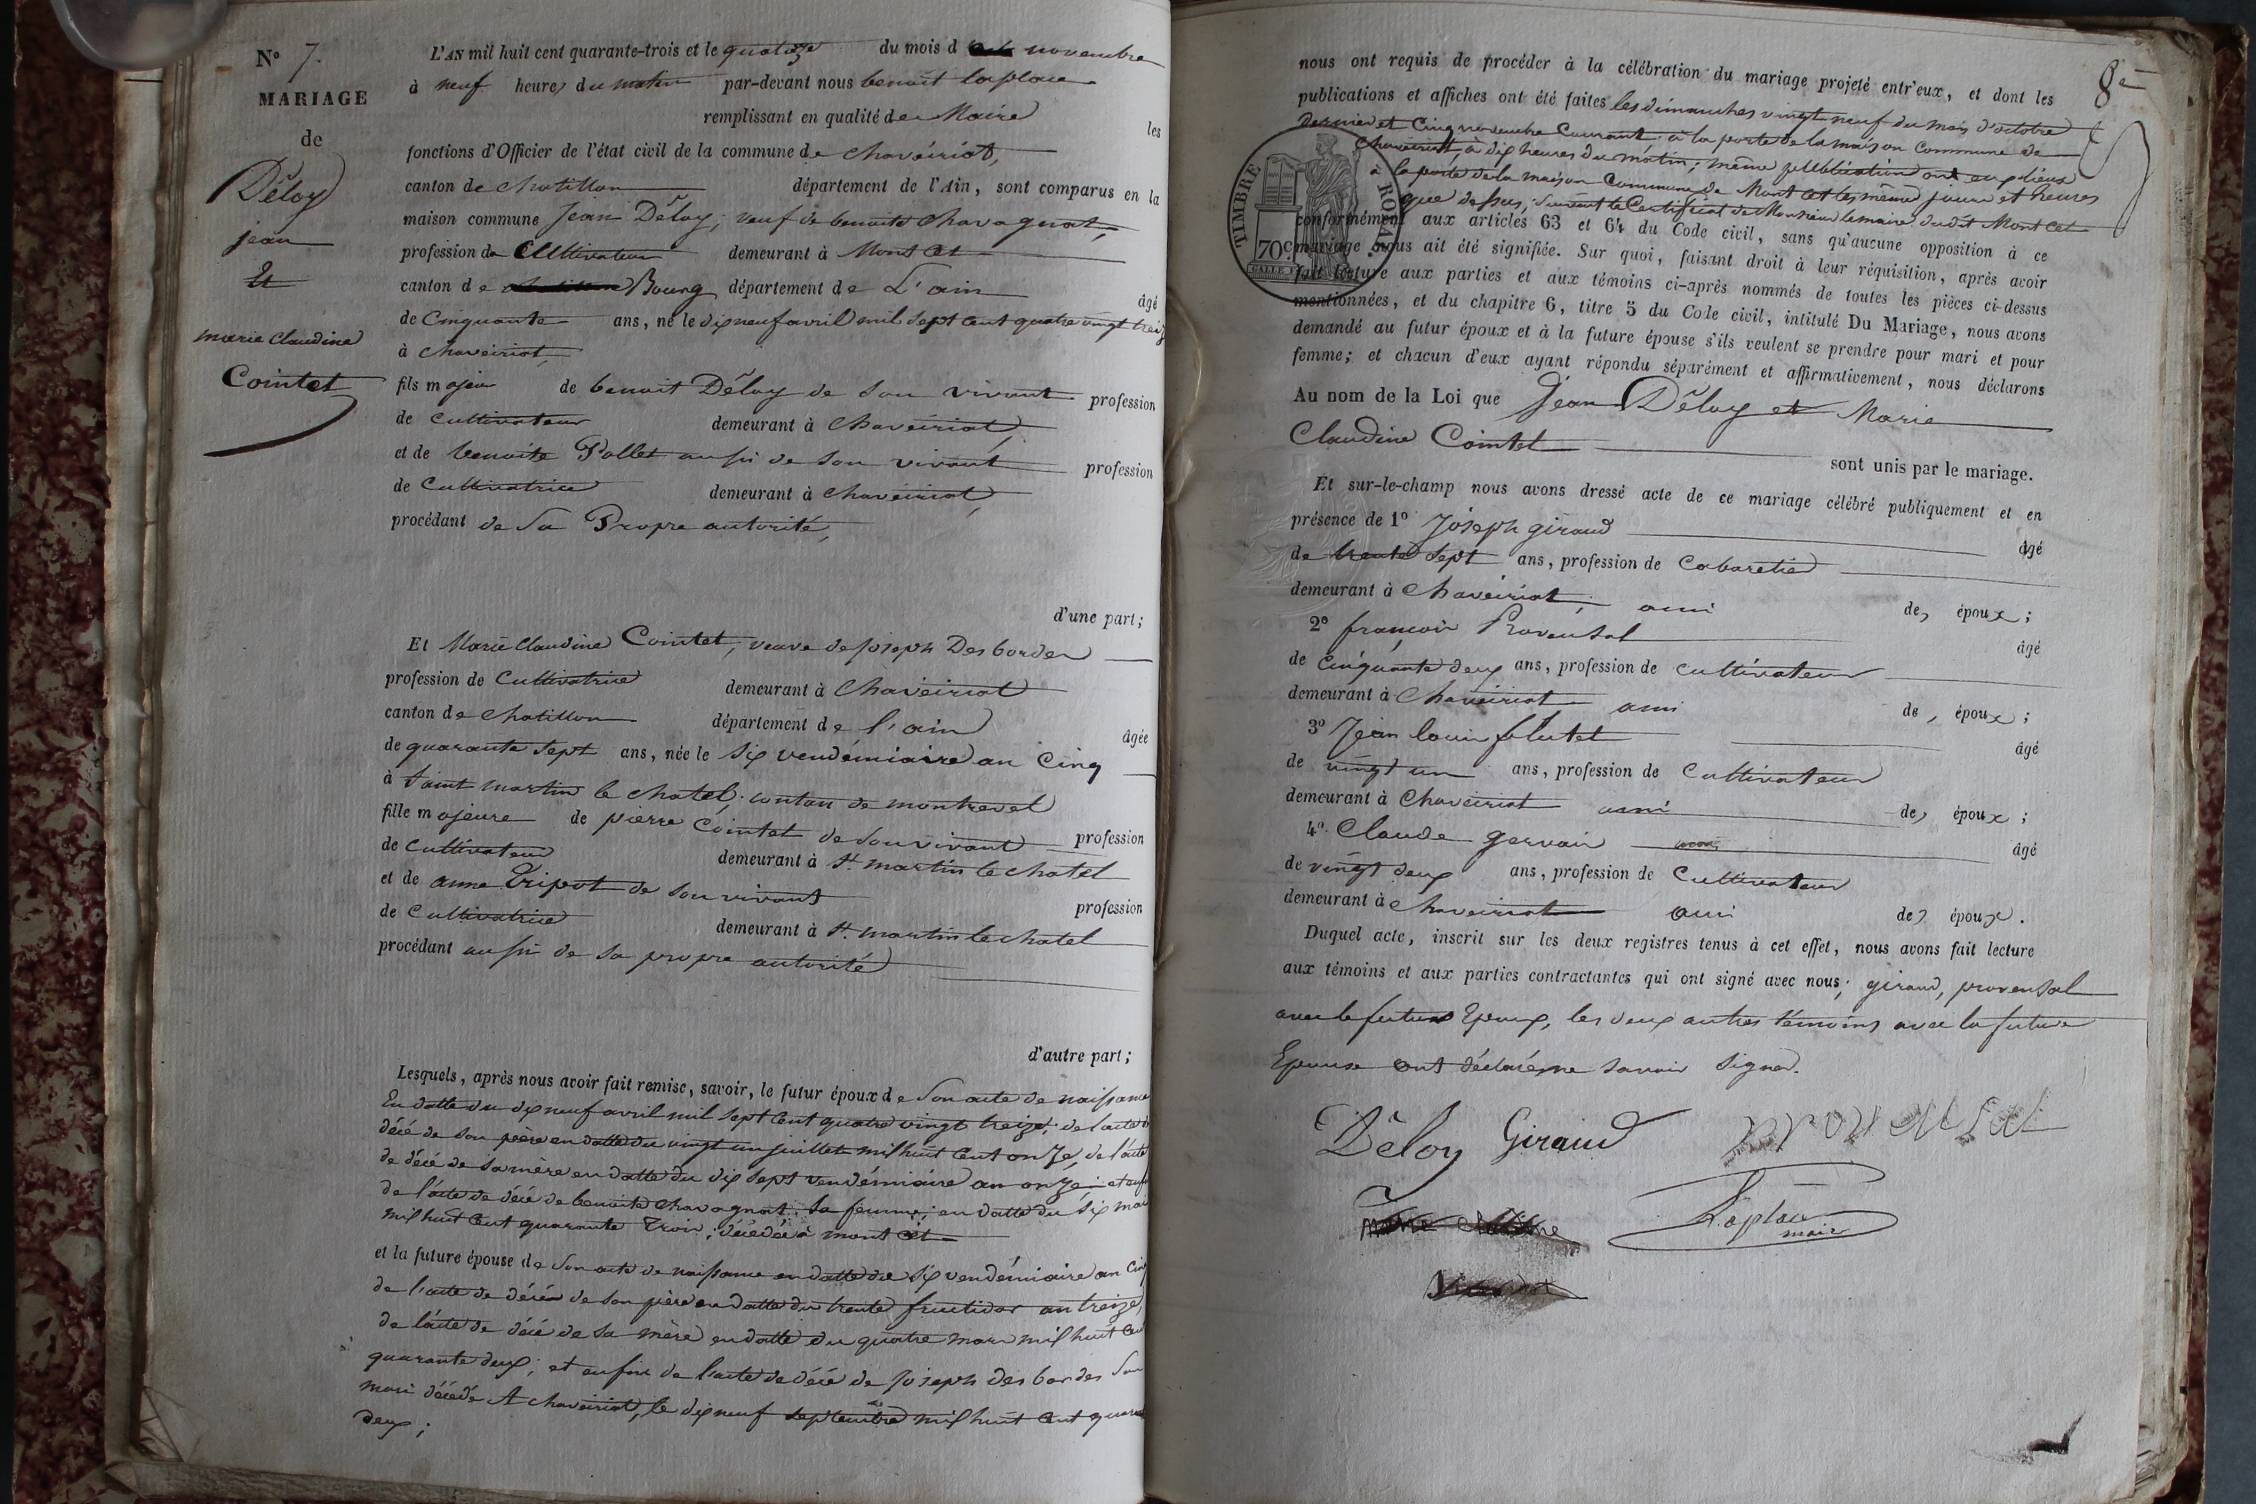 N° 7.
MARIAGE
de
Déloy
jean
Et
marie Claudine
Cointet
L'AN mil huit cent quarante-trois et le quatorze du mois d novembre
à neuf heures du matin par-devant nous benoit laplace
remplissant en qualité de Maire les
fonctions d'Officier de l'état civil de la commune de chaveiriat,
canton de chatillon département de l'Ain, sont comparus en la
maison commune Jean Déloy; veuf de benoite Chavagnat,
profession de Cultivateur demeurant à Mont cet
canton de Bourg département de L'ain âgé
de Cinquante ans, né le dix neuf avril mil sept cent quatre vingt treize
à chaveiriat,
fils majeur de benoit Déloy de son vivant profession
de cultivateur demeurant à Chaveiriat
et de benoite Pollet aussi de son vivant profession
de Cultivatrice demeurant à chaveiriat,
procédant de sa Propre autorité,
d'une part;
Et Marie Claudine Cointet, veuve de joseph Desbordes
profession de Cultivatrice demeurant à Chaveiriat
canton de chatillon département de l'ain âgée
de quarante sept ans, née le six vendémiaire an cinq
à saint martin le chatel. contau de montrevel
fille majeure de pierre Cointet de son vivant profession
de cultivateur demeurant à St. martin le chatel
et de anne Tripot de son vivant profession
de Cultivatrice demeurant à St. martin le chatel
procédant aussi de sa propre autorité
d'autre part;
Lesquels, après nous avoir fait remise, savoir, le futur époux de Son acte de naissance
En datte du dix neuf avril mil sept cent quatre vingt treize; de l'acte de
décé de son père en datte du vingt un juillet mil huit cent onze, de l'acte
de décé de sa mère en datte du dix sept vendémiaire an onze; et enfin
de l'acte de décé de benoite chavagnat; sa femme; en datte du six mai
mil huit cent quarante trois; décédée à mont cet
et la future épouse de Son acte de naissance en datte du six vendémiaire an cinq
de l'acte de décé de son père en datte du trente fructidor an treize,
de l'acte de décé de sa mère en datte du quatre mars mil huit cent
quarante deux; et enfin de l'acte de décé de joseph des bordes son
mari décédé A chaveiriat, le dix neuf septembre mil huit cent quarante
deux;
8e
nous ont requis de procéder à la célébration du mariage projeté entr'eux, et dont les
publications et affiches ont été faites les dimanches vingt neuf du mois d'octobre
dernier et Cinq novembre Courant: à la porte de la maison commune de
chaveiriat, à dix heures du matin; même publication ont eu lieux
à la porte de la maison Commune de Mont cet les mêmes jours et heures
que dessus, suivant le Certificat de Monsieur le maire dudit Mont cet
TIMBRE ROYAL
70 c.
conformément aux articles 63 et 64 du Code civil, sans qu'aucune opposition à ce
mariage nous ait été signifiée. Sur quoi, faisant droit à leur réquisition, après avoir
fait lecture aux parties et aux témoins ci-après nommés de toutes les pièces ci-dessus
mentionnées, et du chapitre 6, titre 5 du Code civil, intitulé Du Mariage, nous avons
demandé au futur époux et à la future épouse s'ils veulent se prendre pour mari et pour
femme; et chacun d'eux ayant répondu séparément et affirmativement, nous déclarons
Au nom de la Loi que Jean Déloy et Marie
Claudine Cointet
sont unis par le mariage.
Et sur-le-champ nous avons dressé acte de ce mariage célébré publiquement et en
présence de 1° Joseph giraud âgé
de trente sept ans, profession de Cabaretier
demeurant à Chaveiriat; ami des époux;
2° françois Provensal âgé
de cinquante deux ans, profession de cultivateur
demeurant à Chaveiriat ami des époux;
3° Jean louis flutet âgé
de vingt un ans, profession de Cultivateur
demeurant à Chaveiriat ami des époux;
4° Claude gervais âgé
de vingt deux ans, profession de Cultivateur
demeurant à Chaveiriat ami des époux.
Duquel acte, inscrit sur les deux registres tenus à cet effet, nous avons fait lecture
aux témoins et aux parties contractantes qui ont signé avec nous; giraud, provensal
avec le futur Epoux, les deux autres témoins avec la future
Epouse ont déclaré ne savoir signer.
Déloy Giraud provensal
Laplace
maire